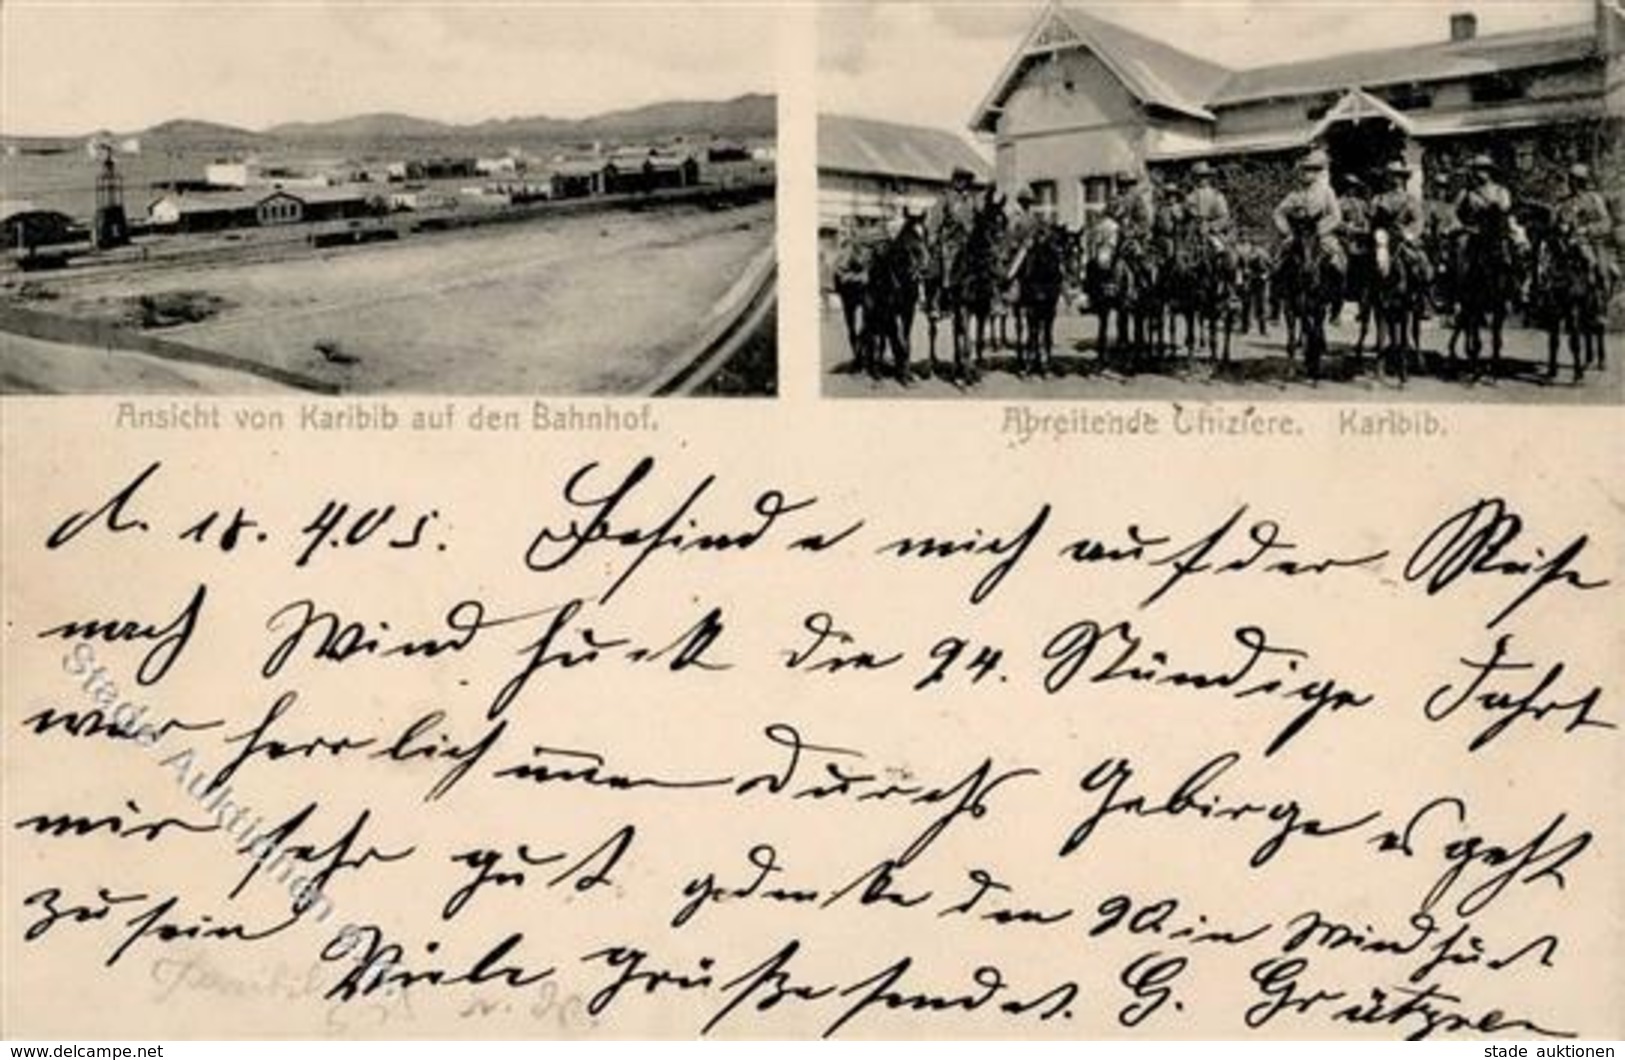 Ansicht von Karibib auf den Bahnhof.
Abreitende Offiziere. Karibib.
d. 18. 4.05. Befinde mich auf der Reise
nach Windhuck die 24. Stündige Fahrt
war herrlich immer durchs Gebirge es geht
mir sehr gut gedenke den 20 in Windhuck
zu sein Viele Grüße sendet. G.
Stade Auktionen
www.delcampe.net
stade auktionen